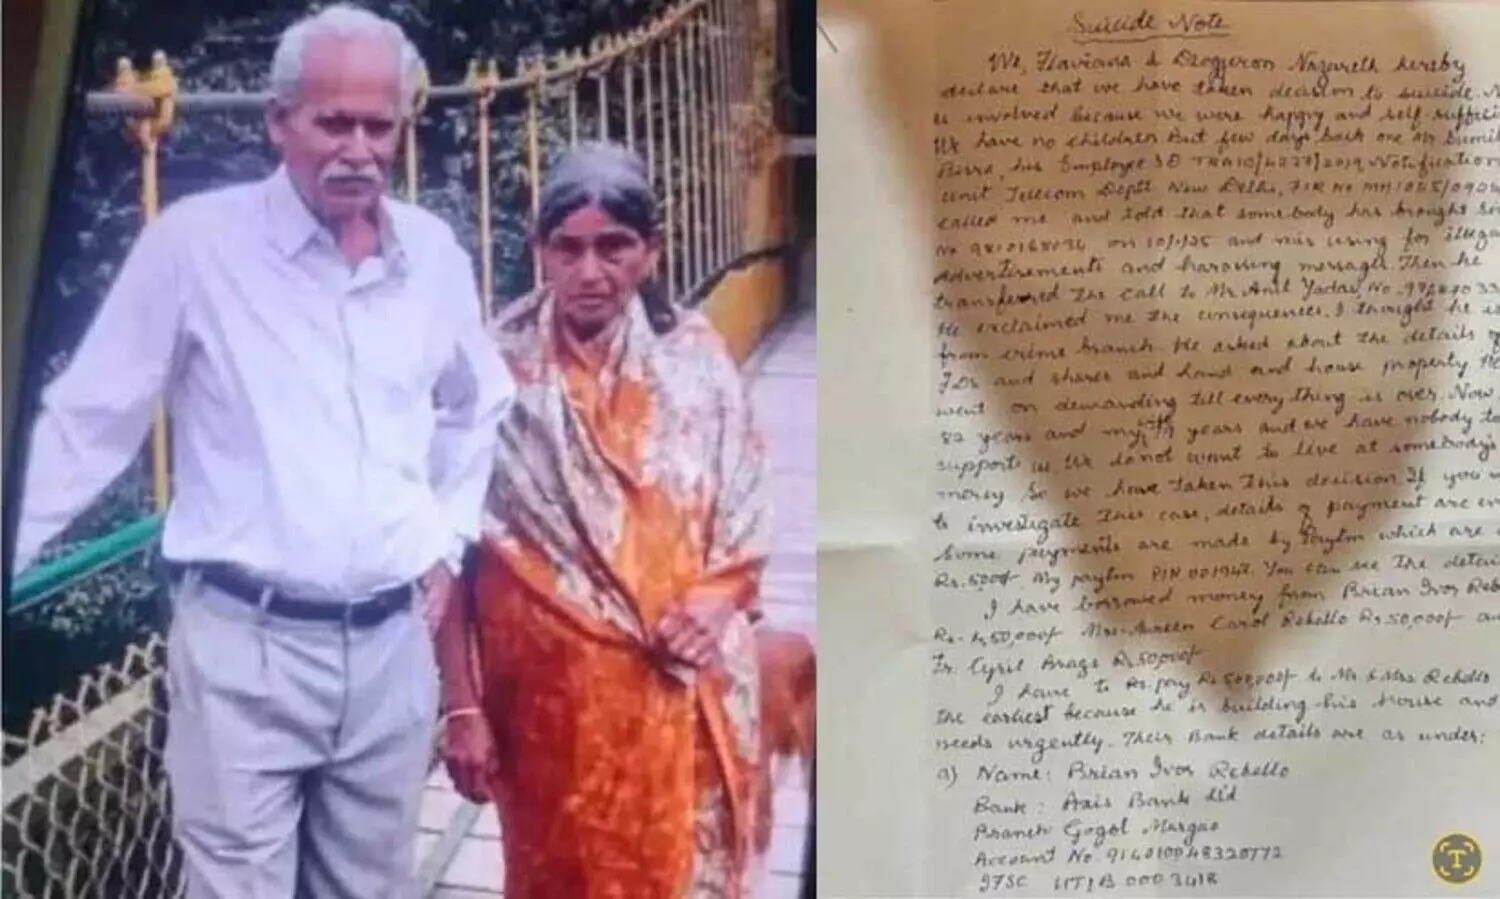 Suicide Note
We, Flaviana & Diogjeron Nazareth hereby
declare that we have taken decision to suicide.
is involved because we were happy and self
We have no children But few days back one Mr Sumit
Birra, his Employee ID TRAI0/4277/2019, Notification
Unit Telecom Deptt New Delhi, FIR No
called me and told that somebody has brought
No on 10/1/25 and mis using for
Advertisements and harassing messages. Then he
transferred the call to Mr Anil Yadav, No.
He exclaimed me the consequences. I thought he is
from crime branch. He asked about the details
FDs and shares and land and house property
went on demanding till every thing is over. Now
82 years and my wife years and we have nobody to
support us. We do not want to live at somebody's
money so we have taken this decision. If you
to investigate this case, details of payment are
Some payments are made by Paytm which are
Rs. My paytm PIN 001947. You can see the
I have borrowed money from Brian Ivor
Rs. Mrs. Aureen Carol Rebello Rs 50,000/-
Fr. Cyril Braga Rs 50,000/-
I have to Re.pay Rs to Mr & Mrs Rebello
the earliest because he is building his House and
needs urgently. Their Bank details are as under:
a) Name: Brian Ivor Rebello
Bank : Axis Bank Ltd
Branch Gogol Margao
Account No. 914010048320772
IFSC UTIB 0003418
T